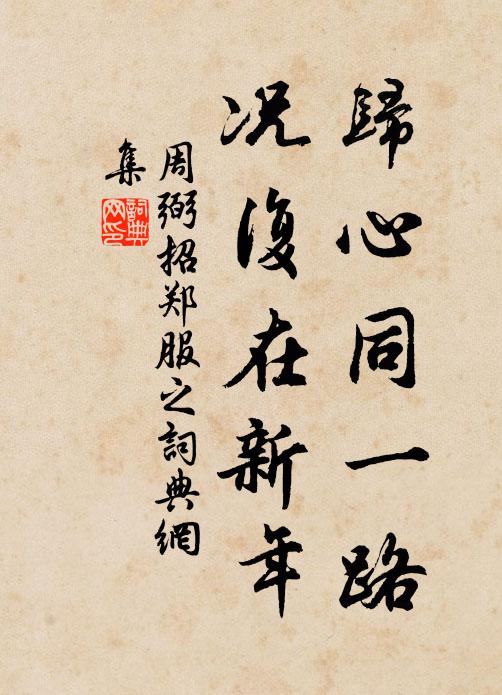 歸心同一路
况復在新年
周弼招郑服之詞典網
集
詞典
网印